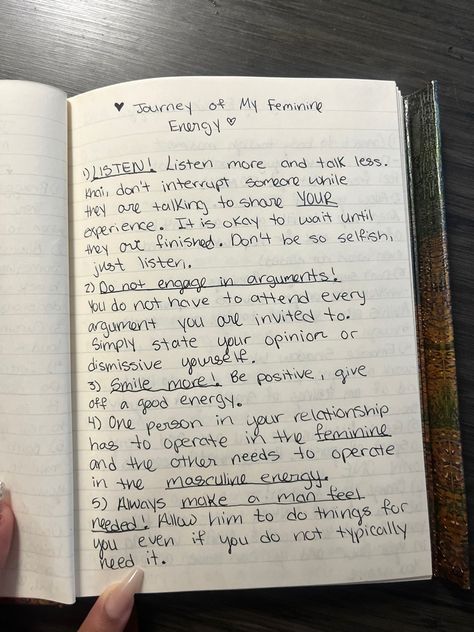 ♥ Journey of My Feminine
Energy ♡
1) LISTEN! Listen more and talk less.
Khai, don't interrupt someone while
they are talking to share YOUR
experience. It is okay to wait until
they are finished. Don't be so selfish,
just listen.
2) Do not engage in arguments!
You do not have to attend every
argument you are invited to.
Simply state your opinion or
dismissive yourself.
3) Smile more! Be positive, give
off a good energy.
4) One person in your relationship
has to operate in the feminine
and the other needs to operate
in the masculine energy.
5) Always make a man feel
needed! Allow him to do things for
you even if you do not typically
need it.